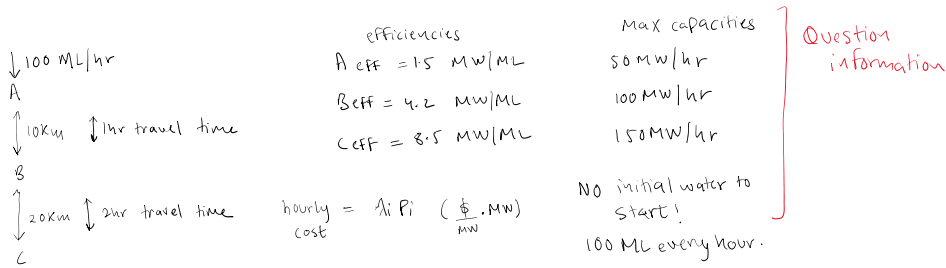 ↓ 100 ML/hr
A
10km 1hr travel time
B
20km 2hr travel time
C
efficiencies
A eff = 1.5 MW/ML
B eff = 4.2 MW/ML
C eff = 8.5 MW/ML
hourly cost = λi Pi ($/MW . MW)
Max capacities
50 MW/hr
100 MW/hr
150 MW/hr
No initial water to
start!
100 ML every hour.
Question
information